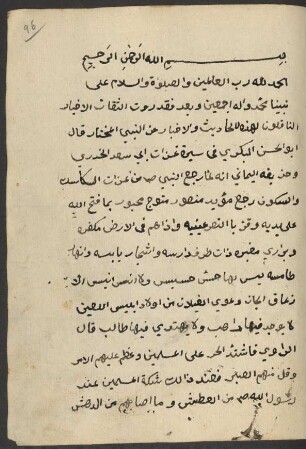 96
بسم الله الرحمن الرحيم
الحمد لله رب العالمين والصلوة والسلام على
نبينا محمد واله اجمعين وبعد فقد روت الثقات الاخيار
الناقلون لهذه الاحاديث والاخبار عن النبي المختار قال
ابو الحسن البكري في سيرة غزوات ابي سعد الخدري
وحذيفه اليماني انه لما رجع النبي ص من غزوات السكاسك
والسكون رجع مؤيد منصور متوج محبور بما فتح الله
على يديه وقر بالنصر عينيه واذا هم في الارض مكفره
وبراري مضره ذات طرق دارسه واشجار يابسه وانهار
طامسه ليس لها حس حسيس ولا انس انيس الا
زعاق الجان وعوي الغيلان من اولاد ابليس اللعين
لا يوجد فيها ذاهب ولا يهتدي فيها طالب قال
الراوي فاشتد الحر على المسلمين وعظم عليهم الامر
وقل منهم الصبر فعند ذالك شكة المسلمين عند
رسول الله ص من العطش وما اصابهم من الدهش